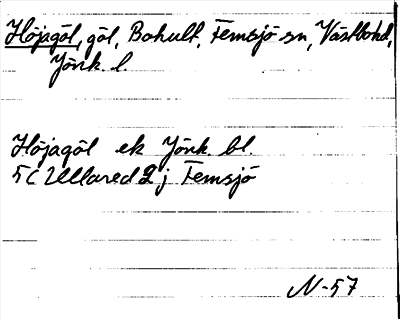 Höjagöl, göl, Bohult, Femsjö sn, Västbohd,
Jönk. l.
Höjagöl ek Jönk. bl.
5 C Ullared 2 j Femsjö
N-57